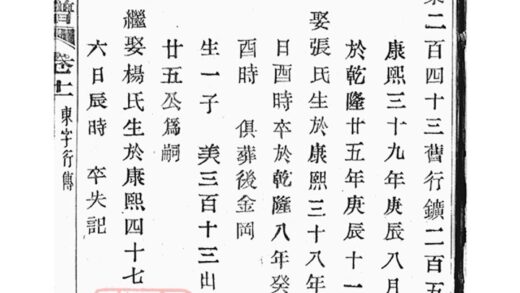 東二百四十三曹行鑛二百五
康熙三十九年庚辰八月
於乾隆廿五年庚辰十一
娶張氏生於康熙三十八年
日酉時卒於乾隆八年癸
酉時 俱葬後金岡
生一子 美三百十三出
廿五公為嗣
繼娶楊氏生於康熙四十七
六日辰時 卒失記
譜 卷十一 東字行傳